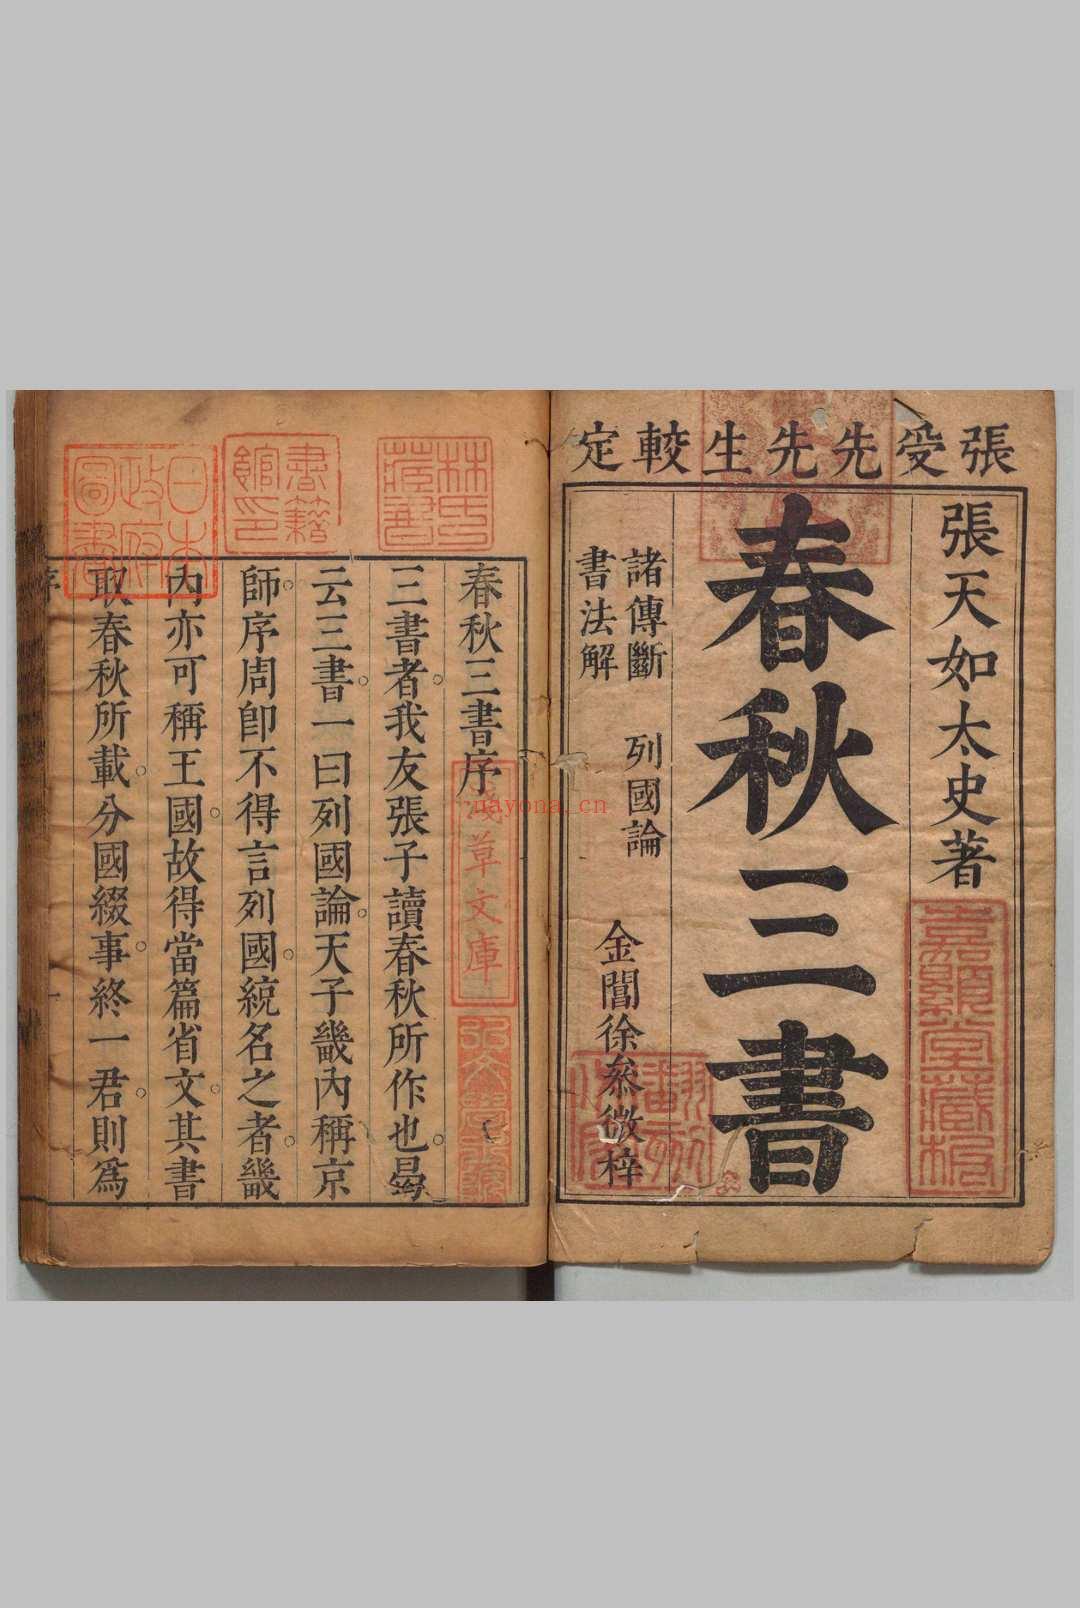 張受先先生較定
張天如太史著
春秋三書
諸傳斷 列國論
書法解
金閶徐叅微梓
嘉顯堂藏板
翻刻
春秋三書序
三書者我友張子讀春秋所作也曷
云三書一曰列國論天子畿內稱京
師序周卽不得言列國統名之者畿
內亦可稱王國故得當篇省文其書
取春秋所載分國綴事終一君則爲
林氏藏書
書籍館印
日本政府圖書
淺草文庫
nayona.cn